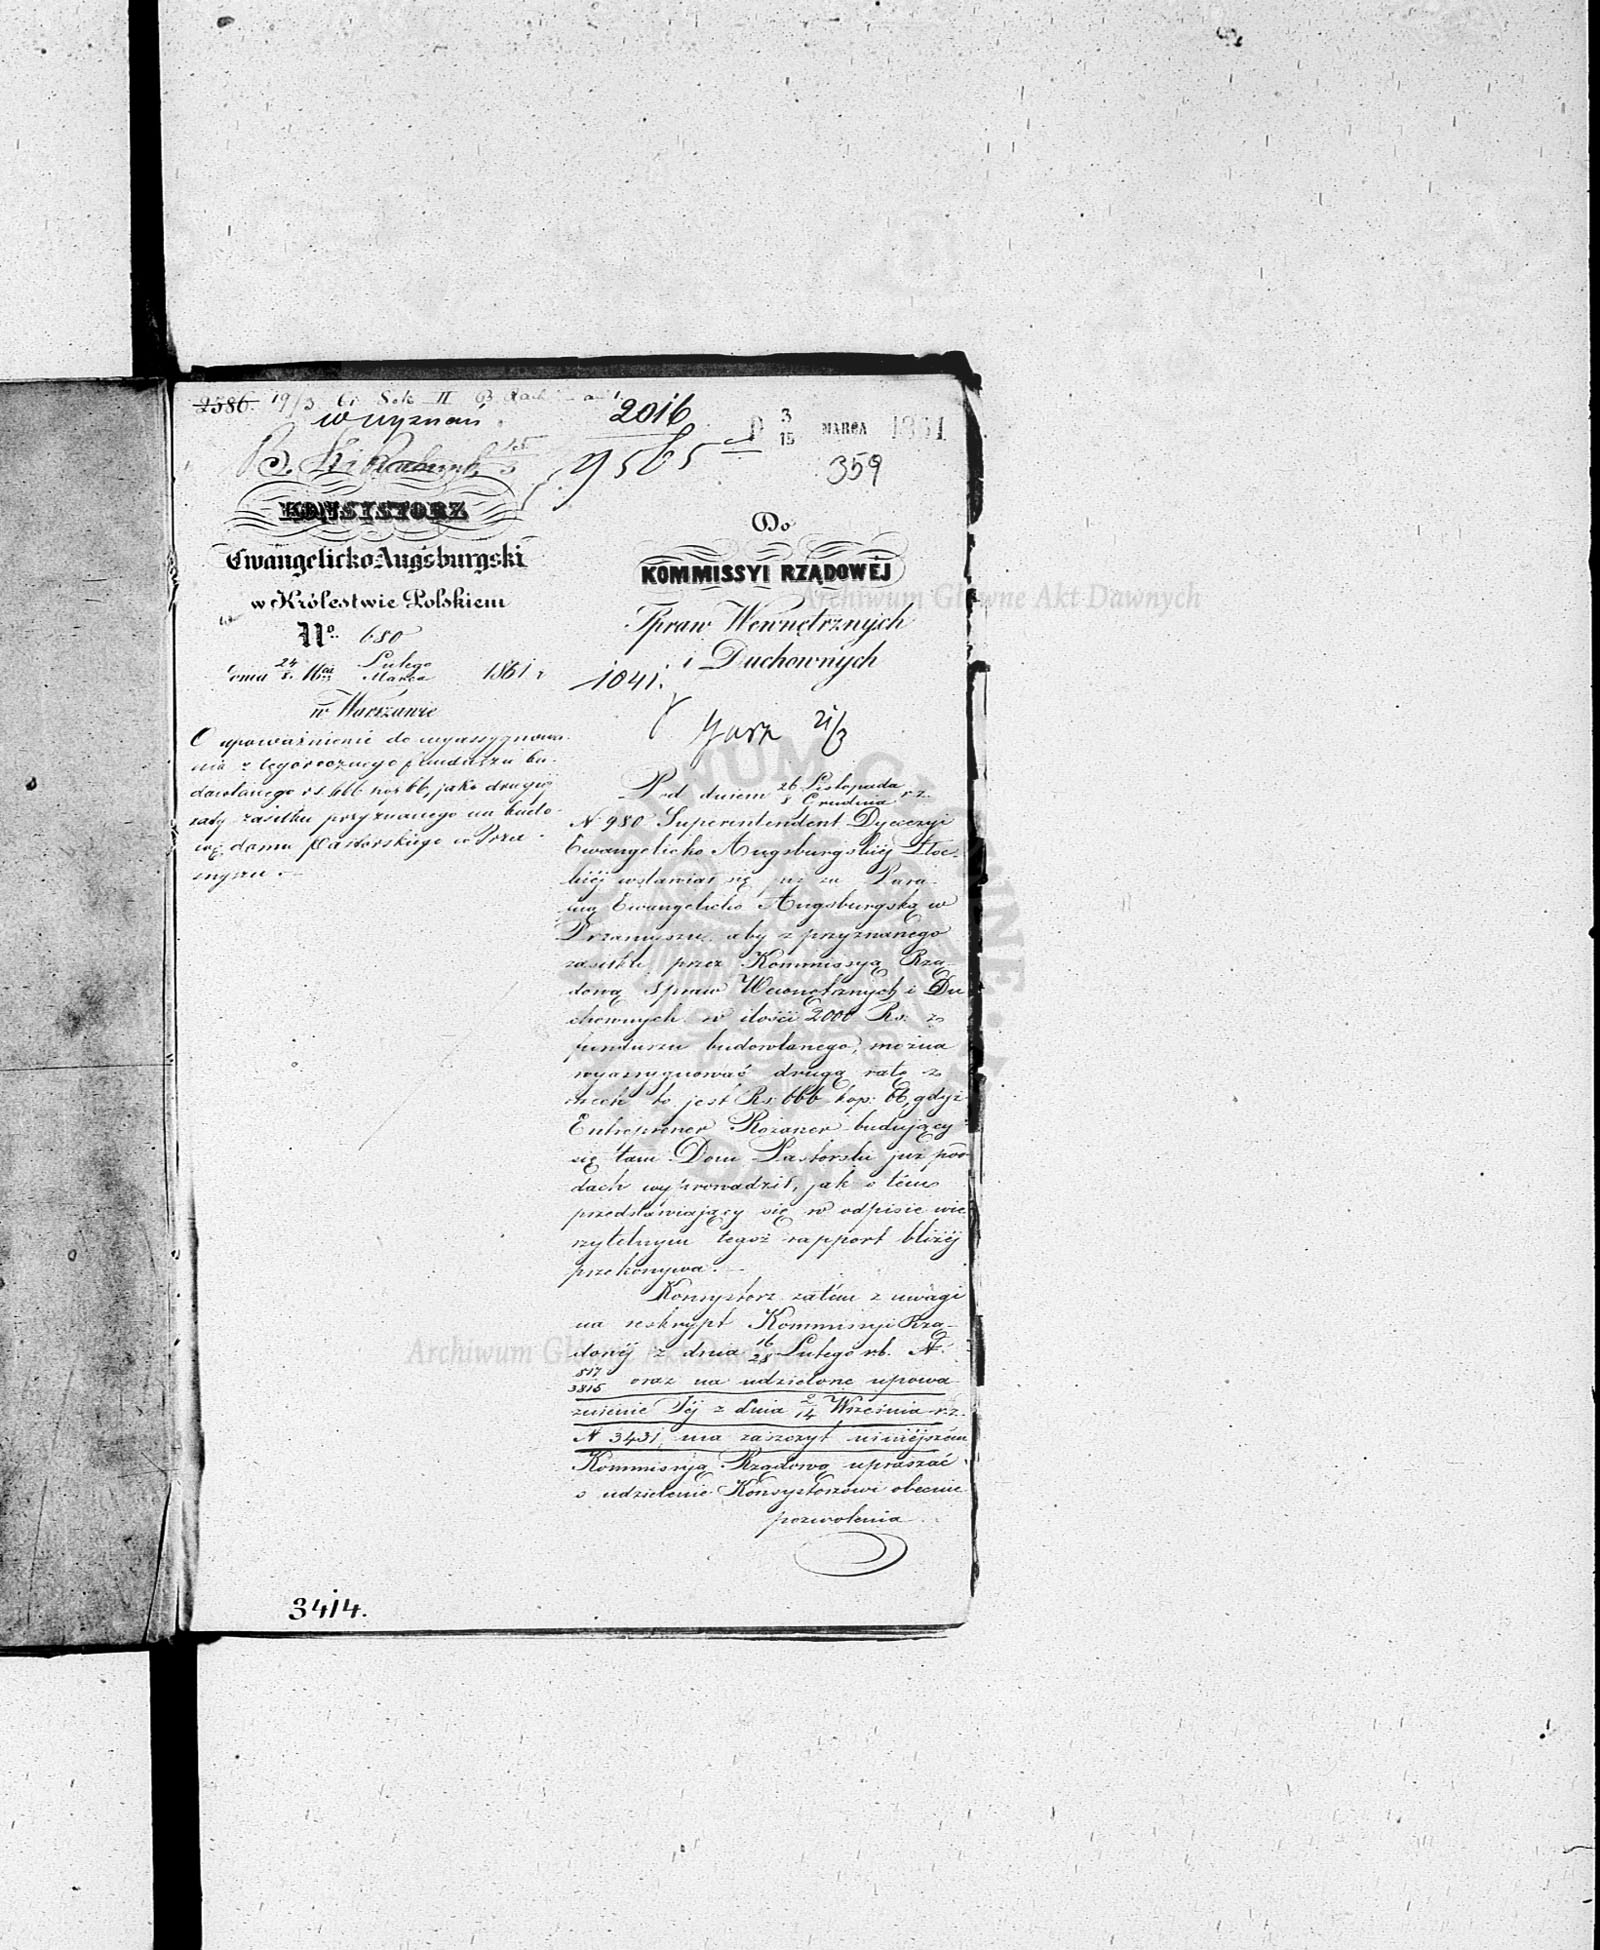 2586. 19/3
2016
D 3/15 MARCA 1861
wyznań
9565
359
KONSYSTORZ
Ewangelicko-Augsburgski
w Królestwie Polskiem
No. 680
dnia 24/8 Lutego/Marca 1861 r
w Warszawie
O upoważnienie do wyassygnowa-
nia z tegorocznego funduszu bu-
dowlanego rs. 666 kop 66, jako drugiej
raty zasiłku przyznanego na budo-
wę domu pastorskiego w Prza-
snyszu.
Do
KOMMISSYI RZĄDOWÉJ
Spraw Wewnętrznych
i Duchownych
1041.
21/3
Pod dniem 26 Listopada/8 Grudnia r. z.
N. 980 Superintendent Dyecezyi
Ewangelicko Augsburgskiéj Płoc-
kiéj wstawiał się już za Para-
fią Ewangelicko Augsburgską w
Przasnyszu, aby z przyznanego
zasiłku przez Kommissyą Rzą-
dową Spraw Wewnętrznych i Du-
chownych w ilości 2000 Rs. z
funduszu budowlanego, można
wyassygnować drugą ratę z
niech to jest Rs. 666 kop: 66, gdyż
Entreprener Rożaner budujący
się tam Dom Pastorski już pod
dach wyprowadził, jak o tém
przedstawiający się w odpisie wie-
rzytelnym tegoż rapport bliżéj
przekonywa.
Konsystorz zatém z uwagi
na reskrypt Kommissyi Rzą-
dowéj z dnia 16/28 Lutego r.b. N.
517/3815 oraz na udzielone upowa-
żnienie Jéj z dnia 2/14 Września r.z.
N 3431, ma zaszczyt niniejszém
Kommissyą Rządową upraszać
o udzielenie Konsystorzowi obecnie
pozwolenia
3414.
Archiwum Główne Akt Dawnych
Archiwum Główne Akt Dawnych